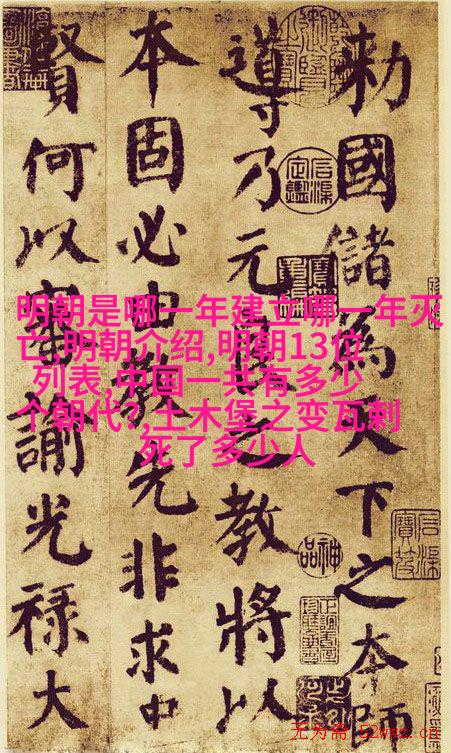 明朝是哪一年建立哪一年灭
亡,明朝介绍,明朝13位
列表,中国一共有多少
个朝代?,土木堡之变瓦剌
死了多少人
勅國儲為天下之本師
導乃元良之教將以
本固必由教先非求中
賢何以審諭光祿大
神品
无为斋 52wwz.cn